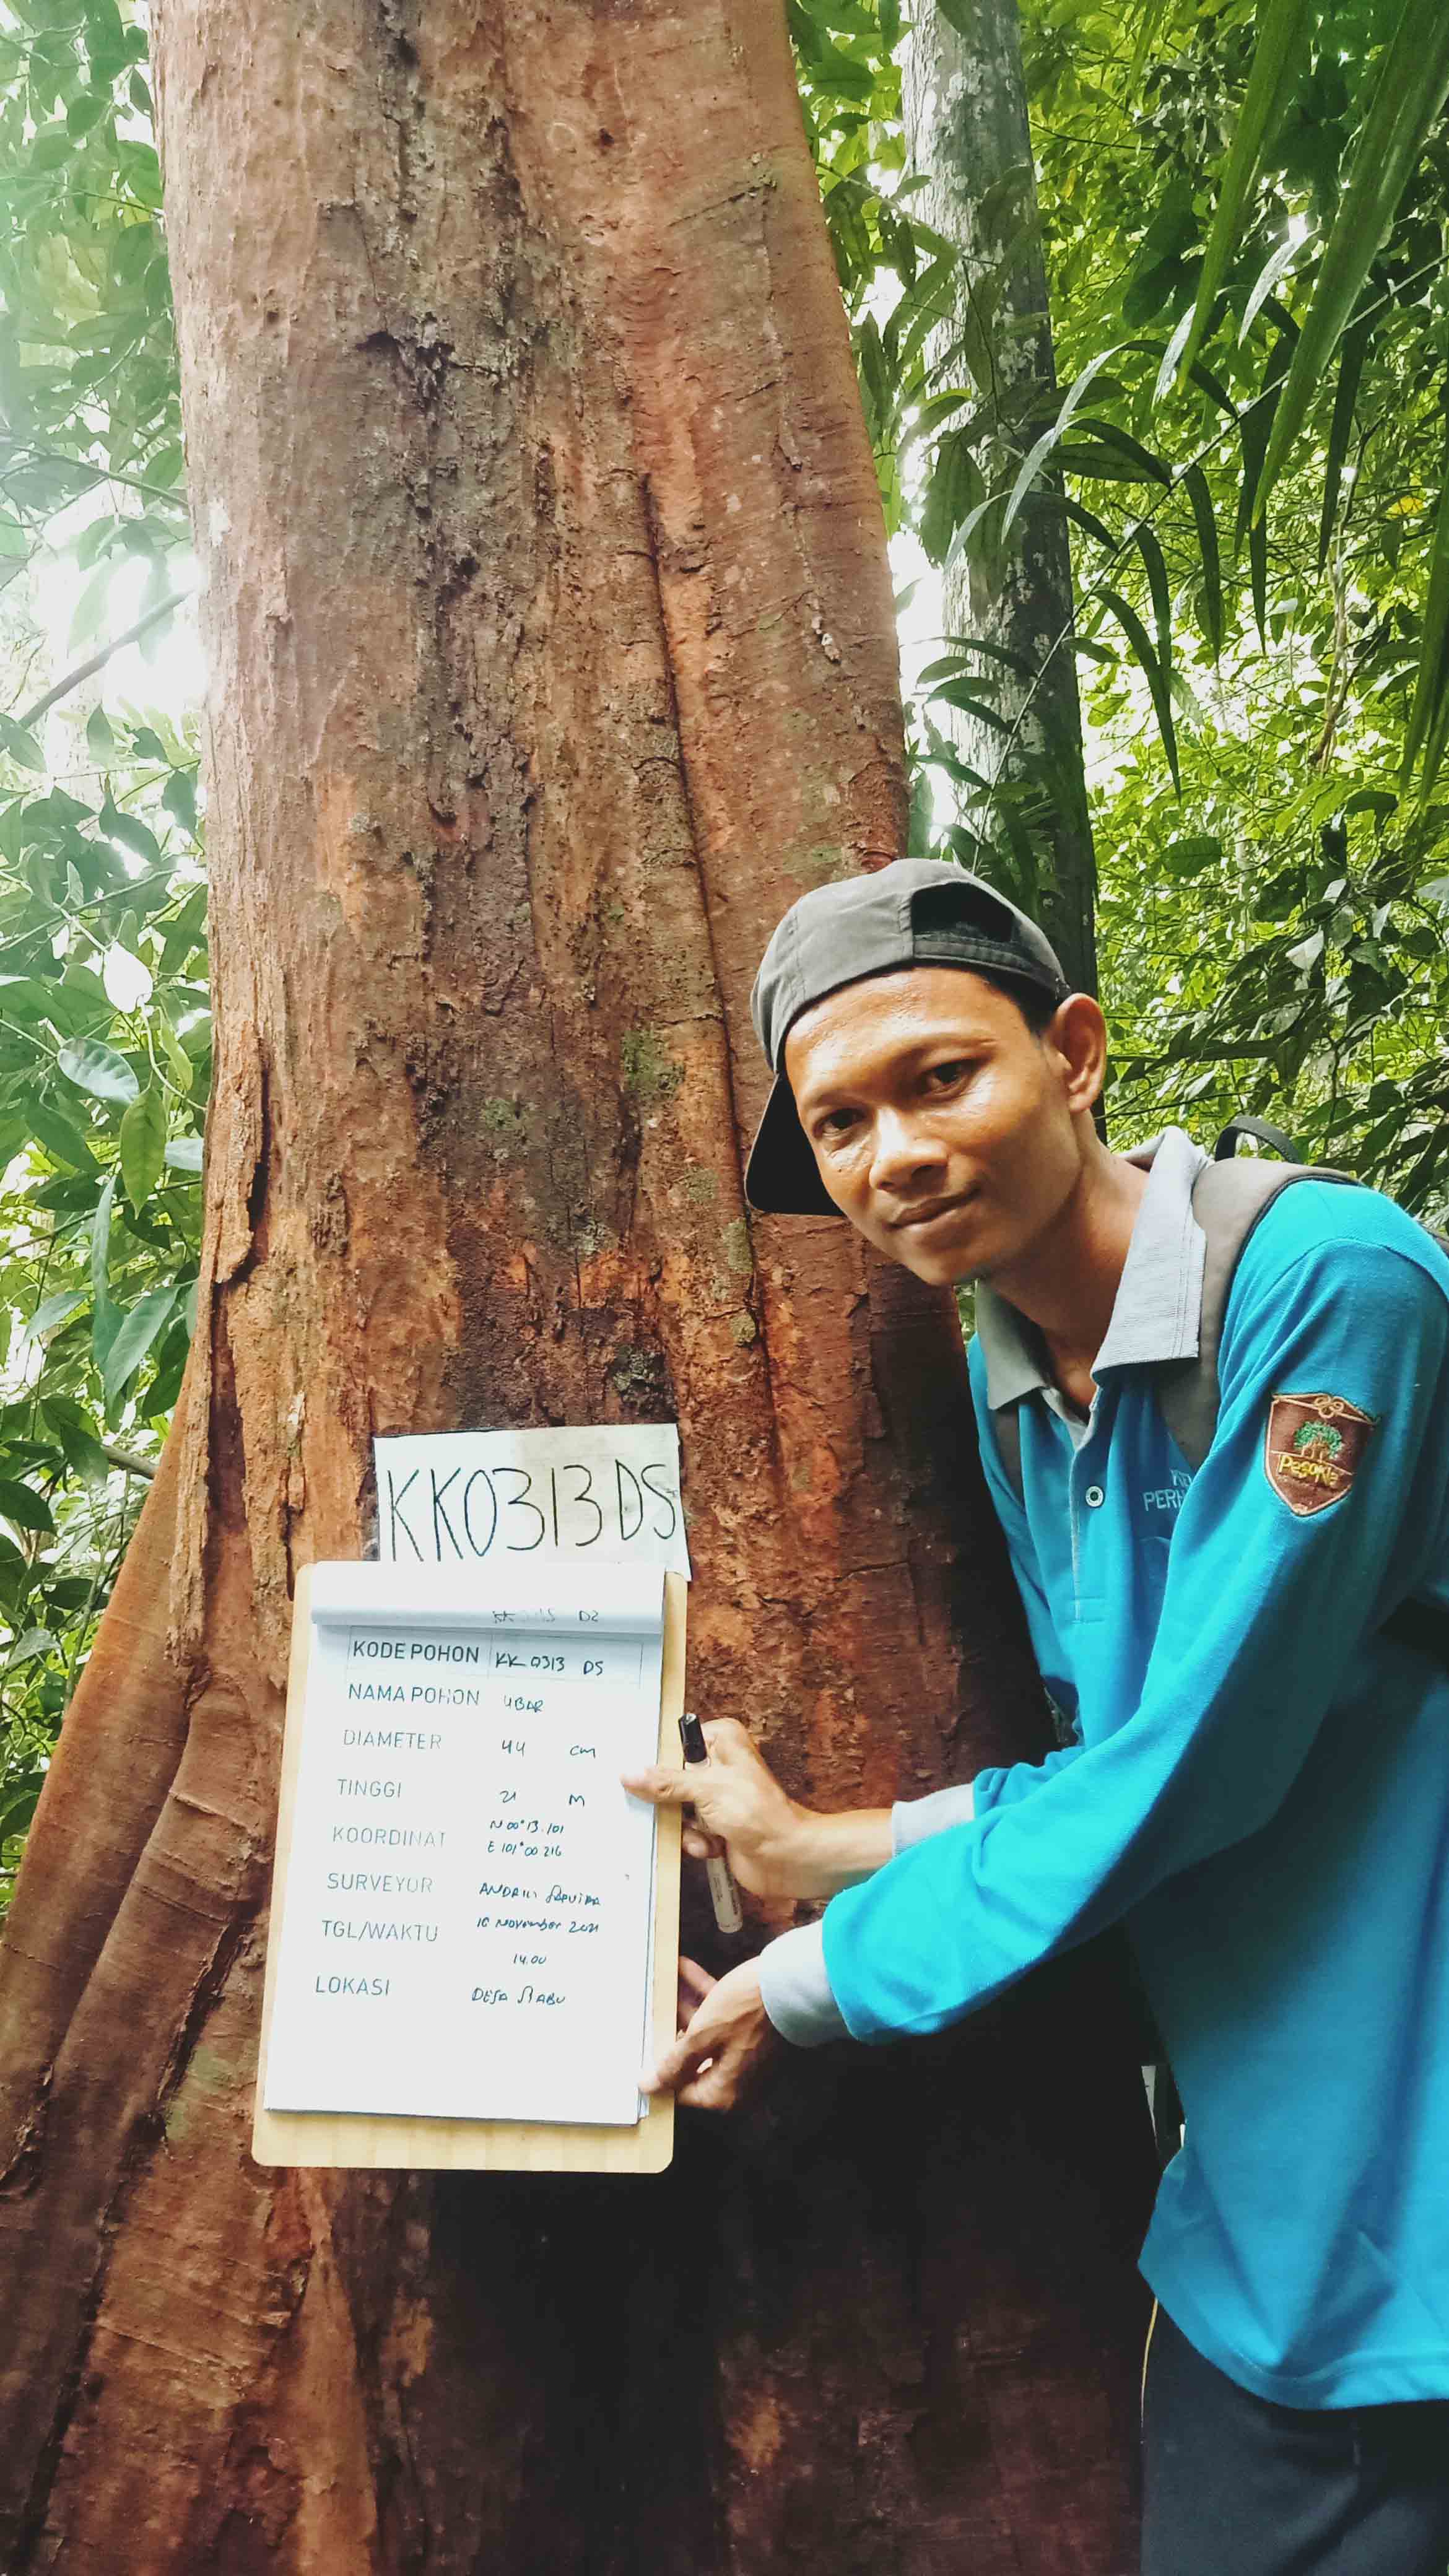 KK0313DS
D2
KODE POHON KK 0313 DS
NAMA POHON UBAR
DIAMETER 44 cm
TINGGI 21 M
KOORDINAT N 00° 13.101
E 101° 00 216
SURVEYOR
TGL/WAKTU 10 November 2021
14.00
LOKASI DESA
PERH